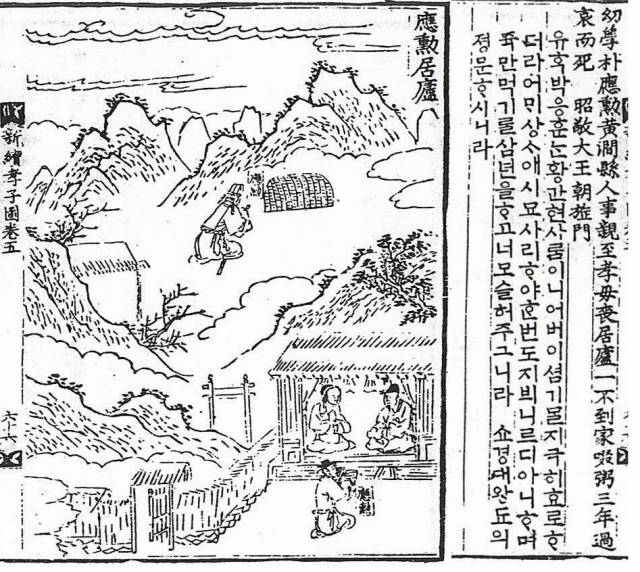 幼學朴應勳黃澗縣人事親至孝母喪居廬一不到家啜粥三年過
哀而死 昭敬大王朝旌門
유혹박응훈ᄂᆞᆫ황간현사ᄅᆞᆷ이니어버이셤기믈지극히효로ᄒᆞ
더라어미상ᄉᆞ애시묘사리ᄒᆞ야ᄒᆞᆫ번도지븨니르디아니ᄒᆞ며
쥭만먹기ᄅᆞᆯ삼년을ᄒᆞ고너모슬허주그니라 쇼경대왕됴의
졍문ᄒᆞ시니라
應勳居廬
應勳
應勳
新續孝子圖卷五
六十六